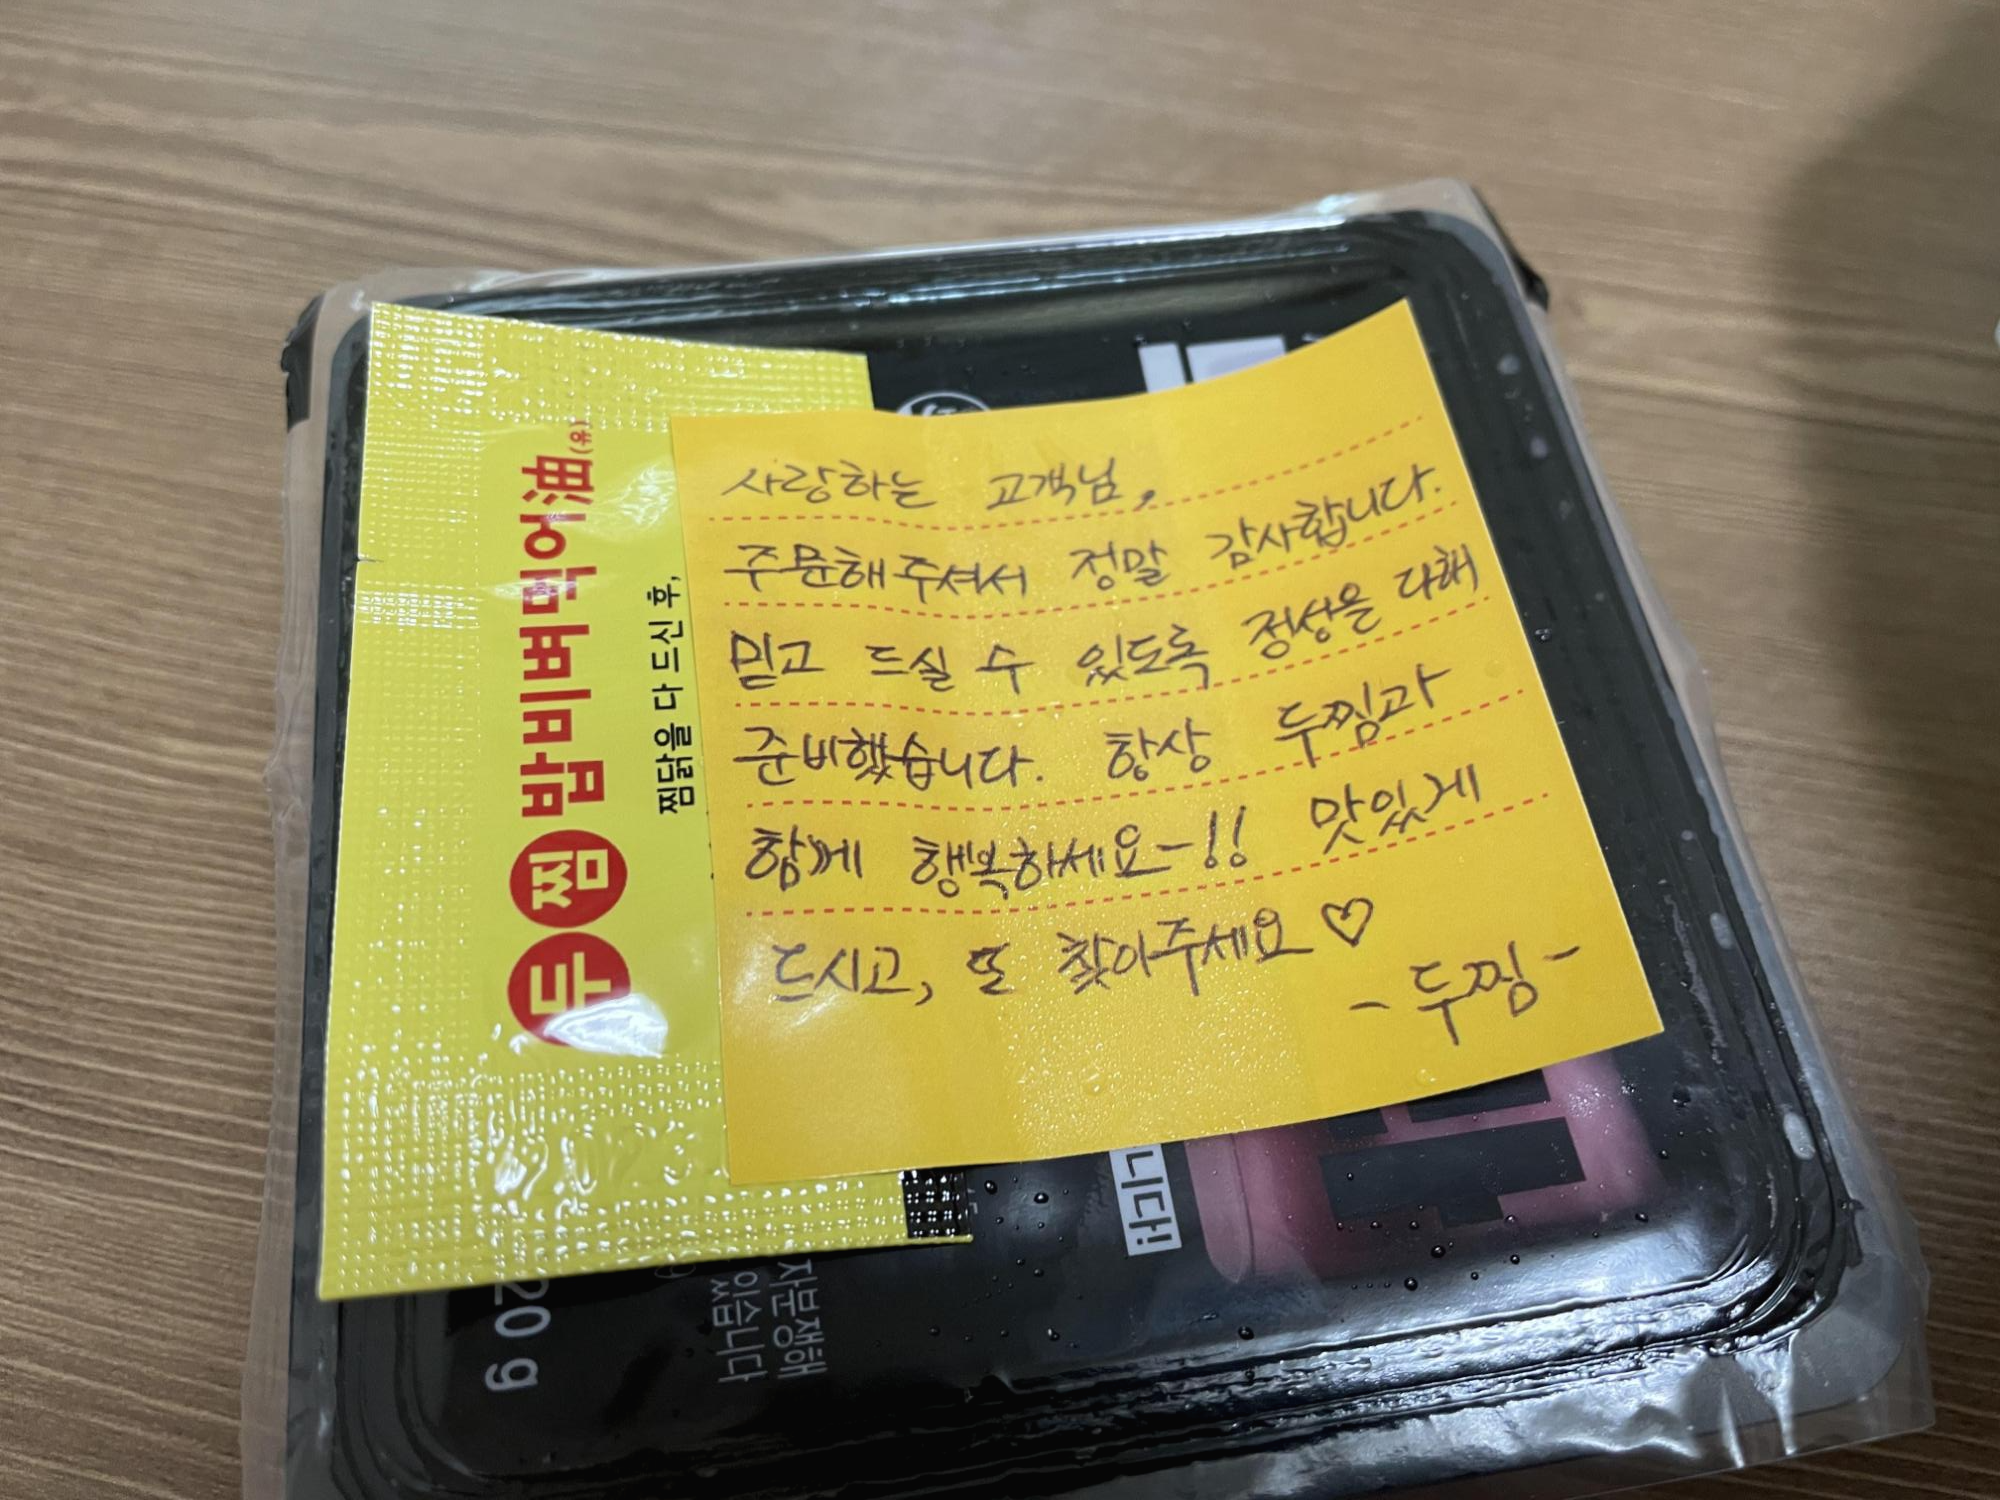 두찜 밥비벼먹어油(유)
찜닭을 다 드신 후,
사랑하는 고객님,
주문해주셔서 정말 감사합니다.
믿고 드실 수 있도록 정성을 다해
준비했습니다. 항상 두찜과
함께 행복하세요~!!  맛있게
드시고, 또 찾아주세요♡
- 두찜 -
니다!
20g